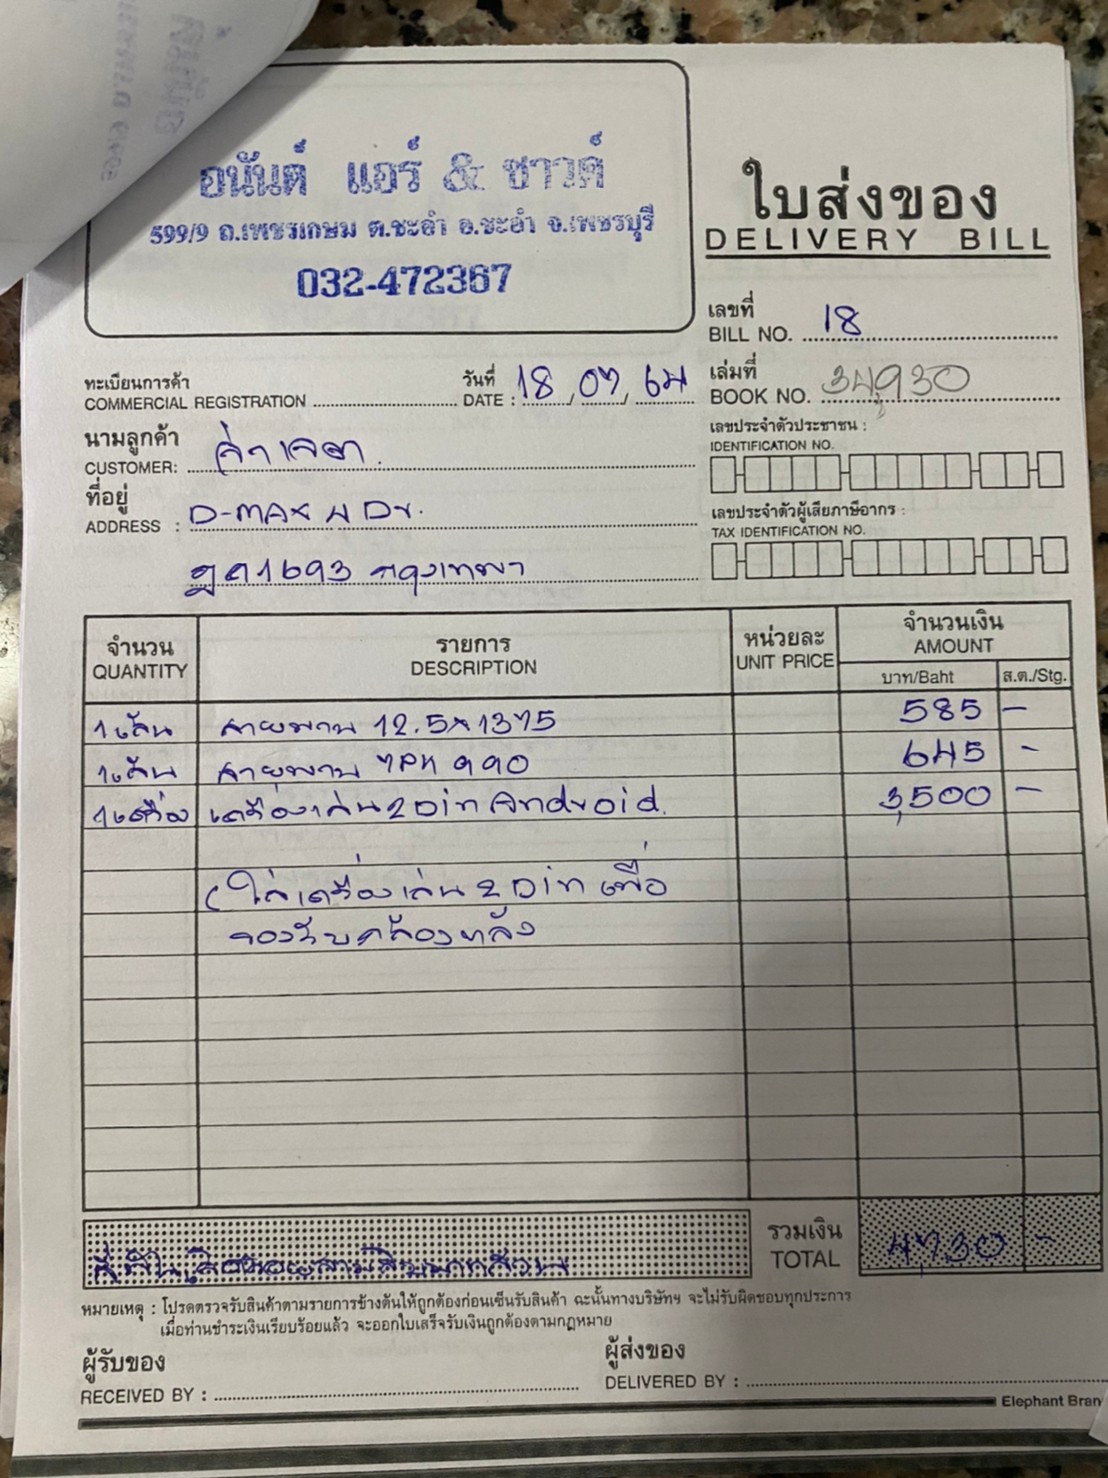 อนันต์ แอร์ & ซาวด์
599/9 ถ.เพชรเกษม ต.ชะอำ อ.ชะอำ จ.เพชรบุรี
032-472367
ใบส่งของ
DELIVERY BILL
เลขที่
BILL NO. 18
ทะเบียนการค้า
COMMERCIAL REGISTRATION
วันที่
DATE : 18, 07, 64
เล่มที่
BOOK NO.
นามลูกค้า
CUSTOMER:
ที่อยู่
ADDRESS : D-MAX 4 Dr.
1693 กรุงเทพฯ
เลขประจำตัวประชาชน :
IDENTIFICATION NO.
เลขประจำตัวผู้เสียภาษีอากร :
TAX IDENTIFICATION NO.
จำนวน รายการ หน่วยละ จำนวนเงิน
QUANTITY DESCRIPTION UNIT PRICE AMOUNT
บาท/Baht ส.ต./Stg.
1 เส้น สายพาน 12.5x1375 585 -
1 เส้น สายพาน 7PK 990 645 -
1 เครื่อง เครื่องเล่น 2 Din Android. 3,500 -
(ใส่เครื่องเล่น 2 Din เพื่อ
รองรับกล้องหลัง
สี่พันเจ็ดร้อยสามสิบบาทถ้วน
รวมเงิน
TOTAL 4,730 -
หมายเหตุ : โปรดตรวจรับสินค้าตามรายการข้างต้นให้ถูกต้องก่อนเซ็นรับสินค้า ฉะนั้นทางบริษัทฯ จะไม่รับผิดชอบทุกประการ
เมื่อท่านชำระเงินเรียบร้อยแล้ว จะออกใบเสร็จรับเงินถูกต้องตามกฎหมาย
ผู้รับของ
RECEIVED BY :
ผู้ส่งของ
DELIVERED BY :
Elephant Bran